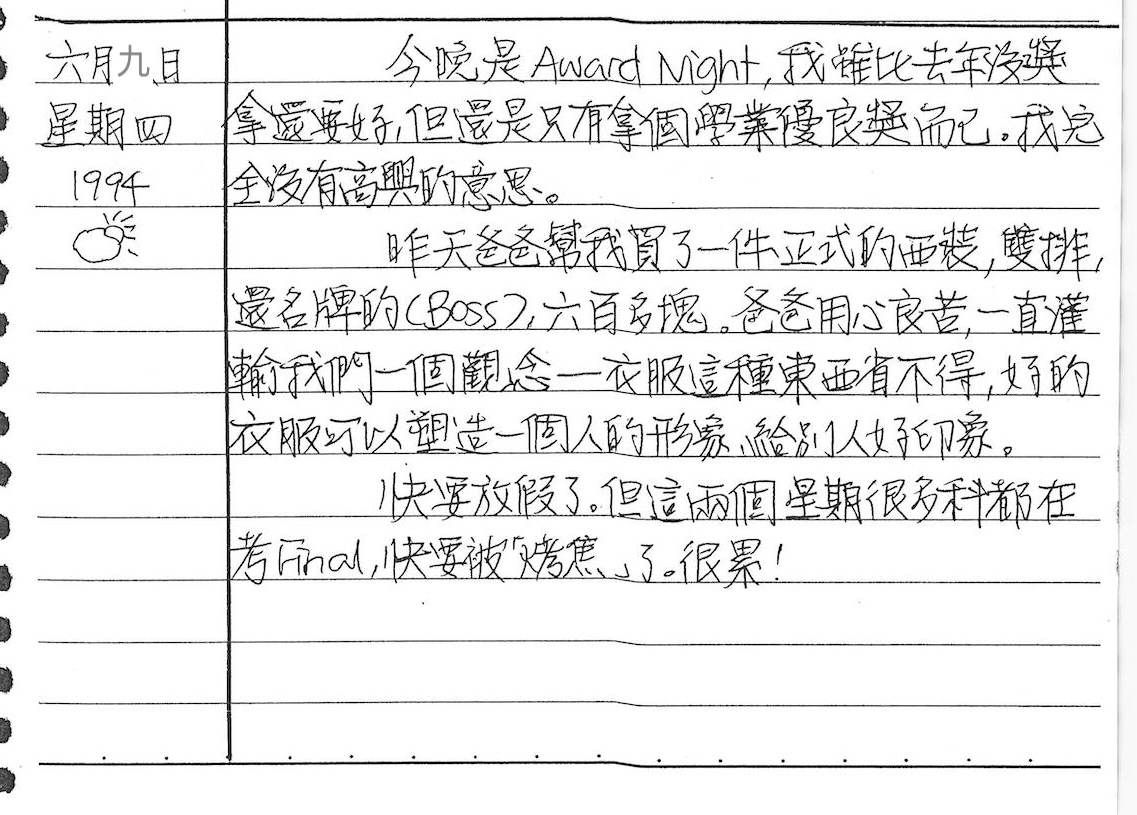 六月九日
星期四
1994
今晚是Award Night,我雖比去年沒獎
拿還要好,但還是只有拿個學業優良獎而已。我完
全沒有高興的意思。
昨天爸爸幫我買了一件正式的西裝,雙排,
還名牌的(Boss),六百多塊。爸爸用心良苦,一直灌
輸我們一個觀念—衣服這種東西省不得,好的
衣服可以塑造一個人的形象、給別人好印象。
快要放假了。但這兩個星期很多科都在
考Final,快要被「烤焦」了。很累!